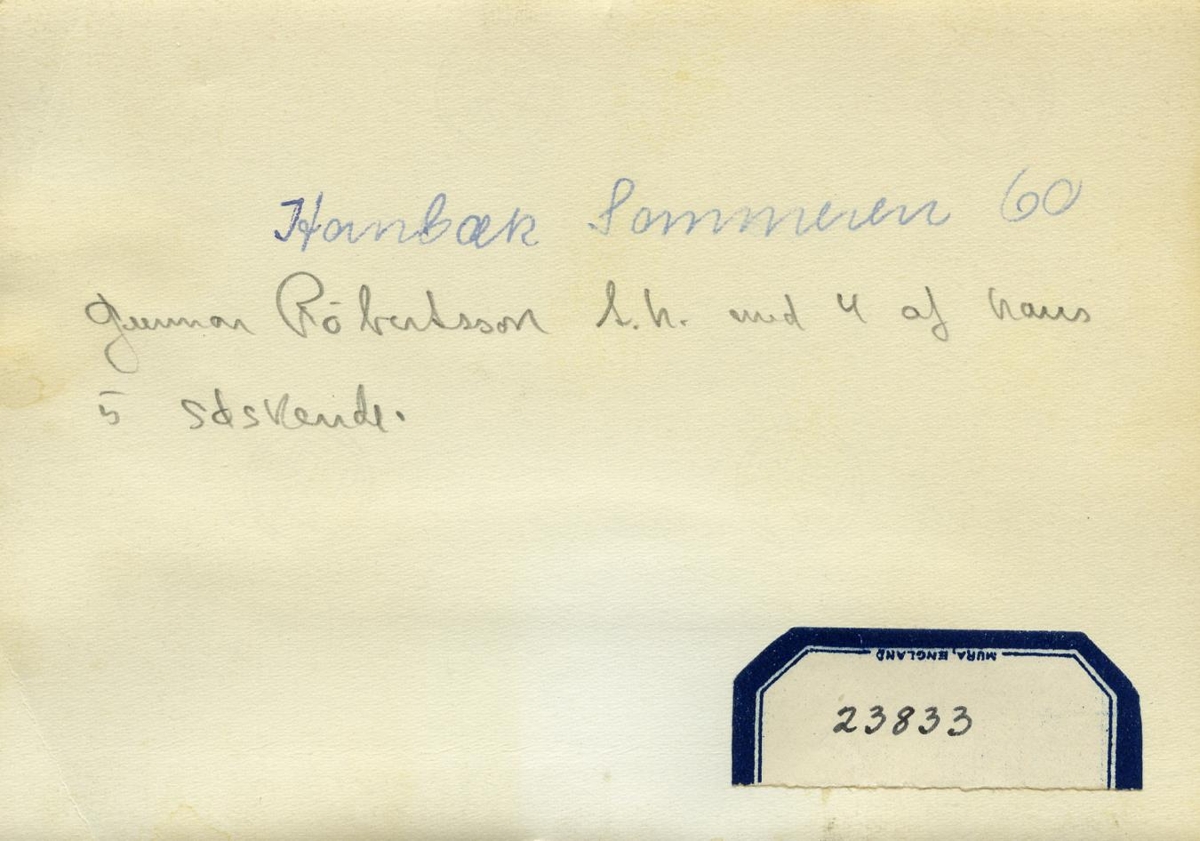 Hornbæk Sommeren 60
Gunnar Róbertsson t.h. med 4 af hans
5 søskende.
MURA, ENGLAND
23833